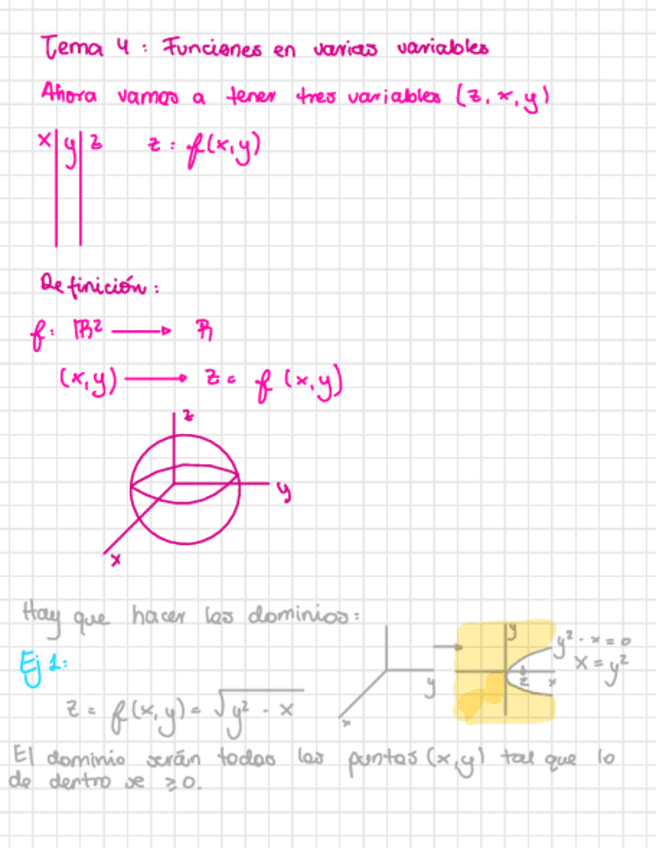 Tema 4: Funciones en varias variables
Ahora vamos a tener tres variables (z, x, y)
x | y | z z = f(x,y)
Definición:
f: ℝ² ⟶ ℝ
(x,y) ⟶ z = f(x,y)
z
y
x
Hay que hacer los dominios:
y
y² - x = 0
Ej 1:
x = y²
y
x
x
z = f(x,y) = √(y² - x)
El dominio serán todos los puntos (x,y) tal que lo
de dentro se ≥ 0.